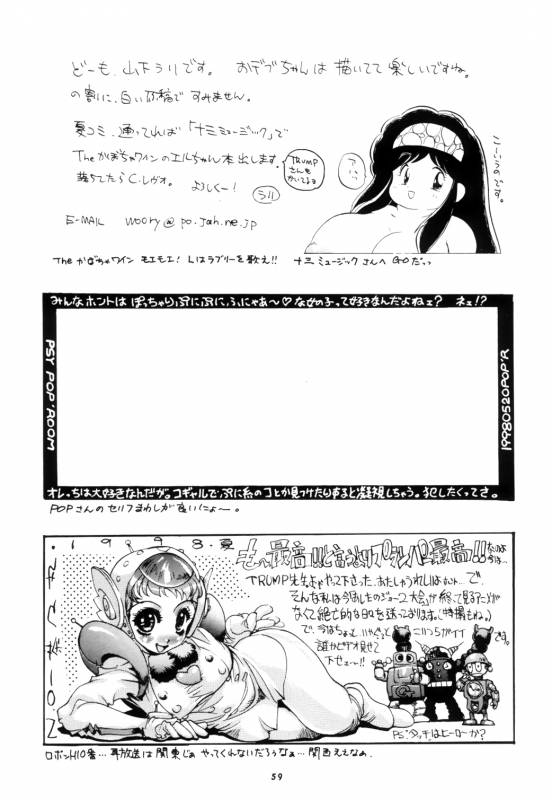 どーも、山下うりです。 おデブちゃんは描いてて楽しいですね。
の割に、白い原稿で すみません。
夏コミ、通ってれば「十三ミュージック」で
Theかぼちゃワインのエルちゃん本出します。
落ちてたらC.レヴォ。 よろしくー!
うり
TRUMP
さんも
かいてるョ
こーゆうのです。
E-MAIL woory@po.jah.ne.jp
Theかぼちゃワイン モエモエ! Lはラブリーを歌え!! 十三ミュージックさんへ GOだっっ
みんなホントは ぽっちゃりぷにぷに、ふにゃあ〜♡な女の子って好きなんだよねェ? ネェ!?
PSY POP'ROOM
19980520POP'R
オレっちは大好きなんだが。コギャルで、ぷに系のコとか見つけたりすると凝視しちゃう。犯したくってさ。
POPさんのセリフまわしが良いにょ〜。
1998.夏
TRUMP先生よ
そんな私は今年もの
なくて絶望的な日々を送っております。(特撮もね。)
で、今はちょっと
こいつらがイイ
です。
誰かビデオ見せて
下せェー!!
PS:タッチはヒーローか?
ロボット110番…再放送は関東じゃ やってくれないだろうなぁ… 関西ええなぁ。
59